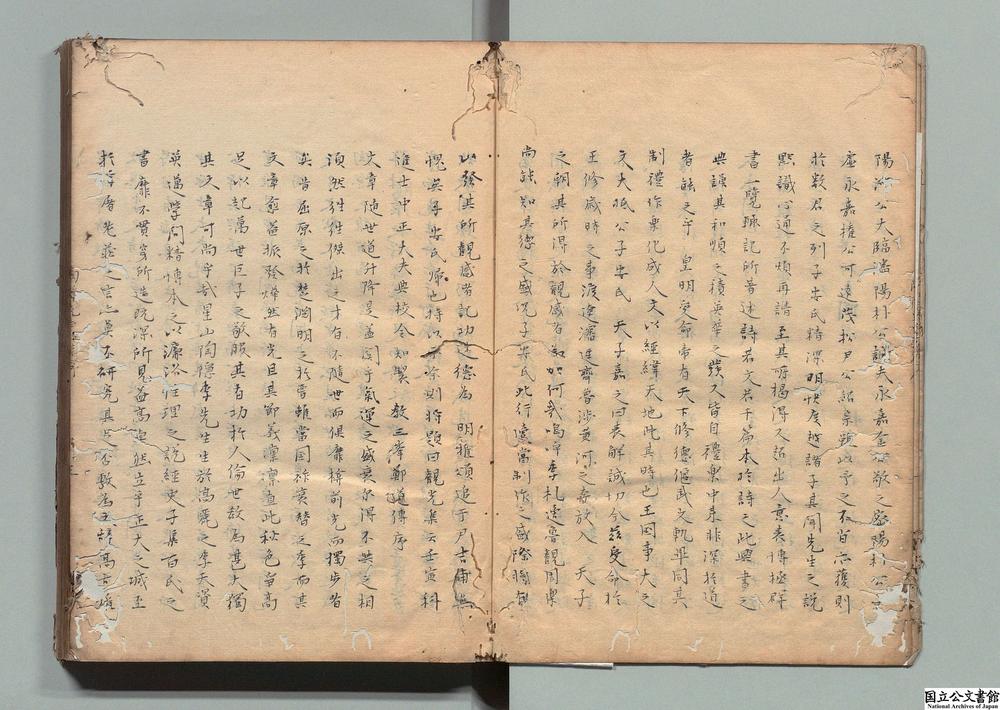 陽朴公大臨潘陽朴公誠夫永嘉金公敬之密陽朴公子
虛永嘉權公可遠茂松尹公紹宗雖以予之不肖亦獲則
於數君之列子安氏精深明快度越諸子其聞先生之說
默識心通不煩再請至其所獨得又超出人意表博極群
書一覽輒記所著述詩若文若干篇本於詩之比興書之
典謨其和順之積英華之發又皆自禮樂中來非深於道
者能之乎 皇明受命帝有天下修德偃武文軌畢同其
制禮作樂化成人文以經緯天地此其時也王國事大之
文大抵公子安氏 天子嘉之曰表解誠切今玆受命於
王修歲時之事渡遼瀋逕齊魯涉黃河之奔放入 天子
之朝其所得於觀感者爲如何哉嗚呼季札適魯觀周樂
尚能知其德之盛況子安氏此行適當制作之盛際將有
以發其所觀感者記功述德爲 明雅頌追于尹吉甫無
愧矣子安氏歸也持以示余則將題曰觀光集云壬寅科
進士中正大夫典校令知製 教三峯鄭道傳序
文章隨世道升降是蓋關乎氣運之盛衰不得不與之相
須然往往傑出之才有不隨世而俱靡掩前光而獨步者
矣昔屈原之於楚淵明之於晉雖當國祚衰替之季而其
文章愈益振發燁然有光且其節義凜凜直此秋色爭高
足以起萬世臣子之敬服其有功於人倫世敎爲甚大獨
其文章可尚乎哉星山陶隱李先生生於高麗之季天資
英邁學問精博本之以濂洛性理之說經史子集百氏之
書靡不貫穿所造既深所見益高卓然立乎正大之域至
於浮屠老莊之言亦莫不研究其是否敷爲文辭高古
国立公文書館
National Archives of Japan